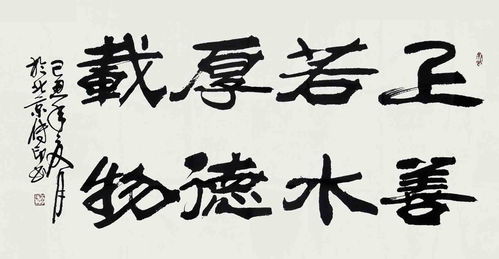 上善
若水
厚德
載物
己丑年夏月
於北京